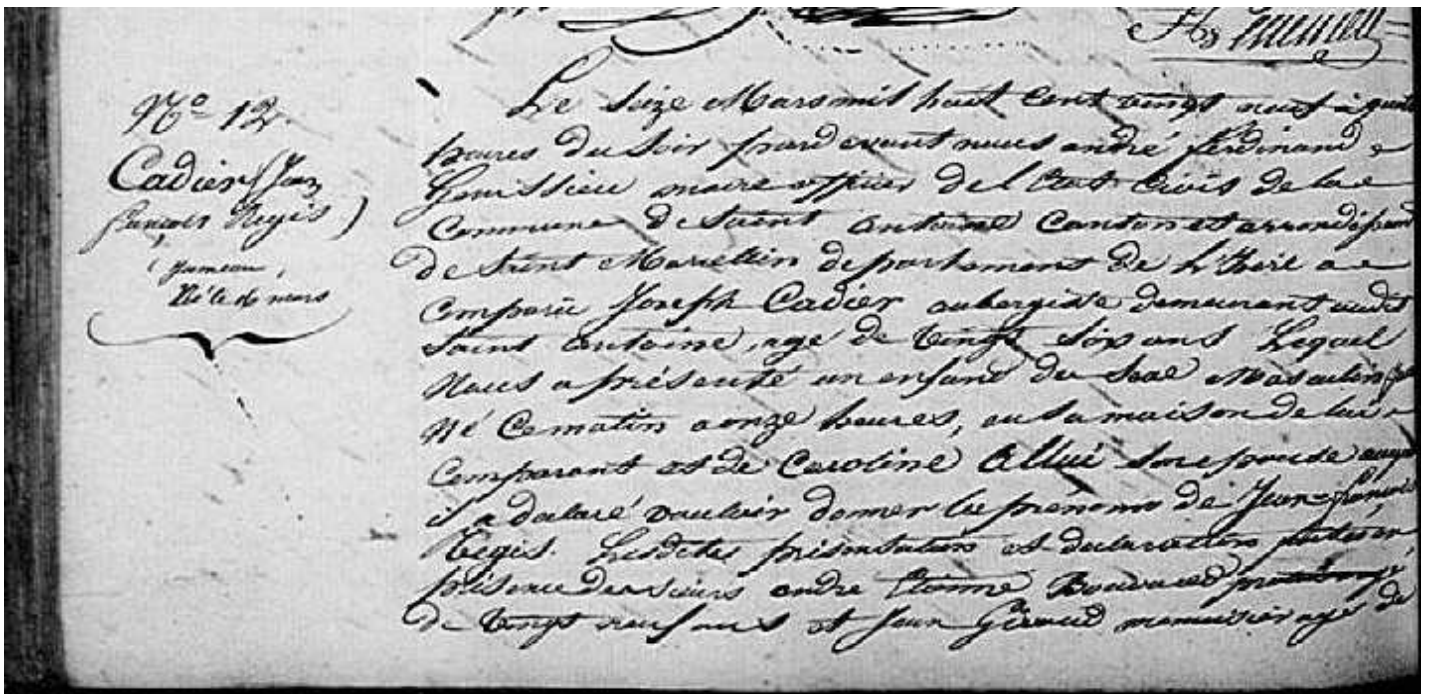 No 12
Cadier (Jean
françois Regis)
jumeau,
Né le 16 mars
Le Seize Mars mil huit cent vingt neuf à quatre
heures du Soir pardevant nous andré ferdinand
maire officier de l'Etat Civil de la
Commune de Saint antoine Canton et arrondissement
de Saint Marcellin département de L'Isère a
Comparu Joseph Cadier aubergiste demeurant audit
Saint antoine, agé de Vingt six ans Lequel
Nous a présenté un enfant du Sexe Masculin
Né Ce matin a onze heures, en sa maison de lui
Comparant et de Caroline Allué son epouse auquel
il a déclaré vouloir donner les prénoms de Jean françois
Regis. Lesdites présentation et declaration faites en
présence des sieurs andre Etienne
de Vingt neuf ans et Jean Giraud menuisier agé de